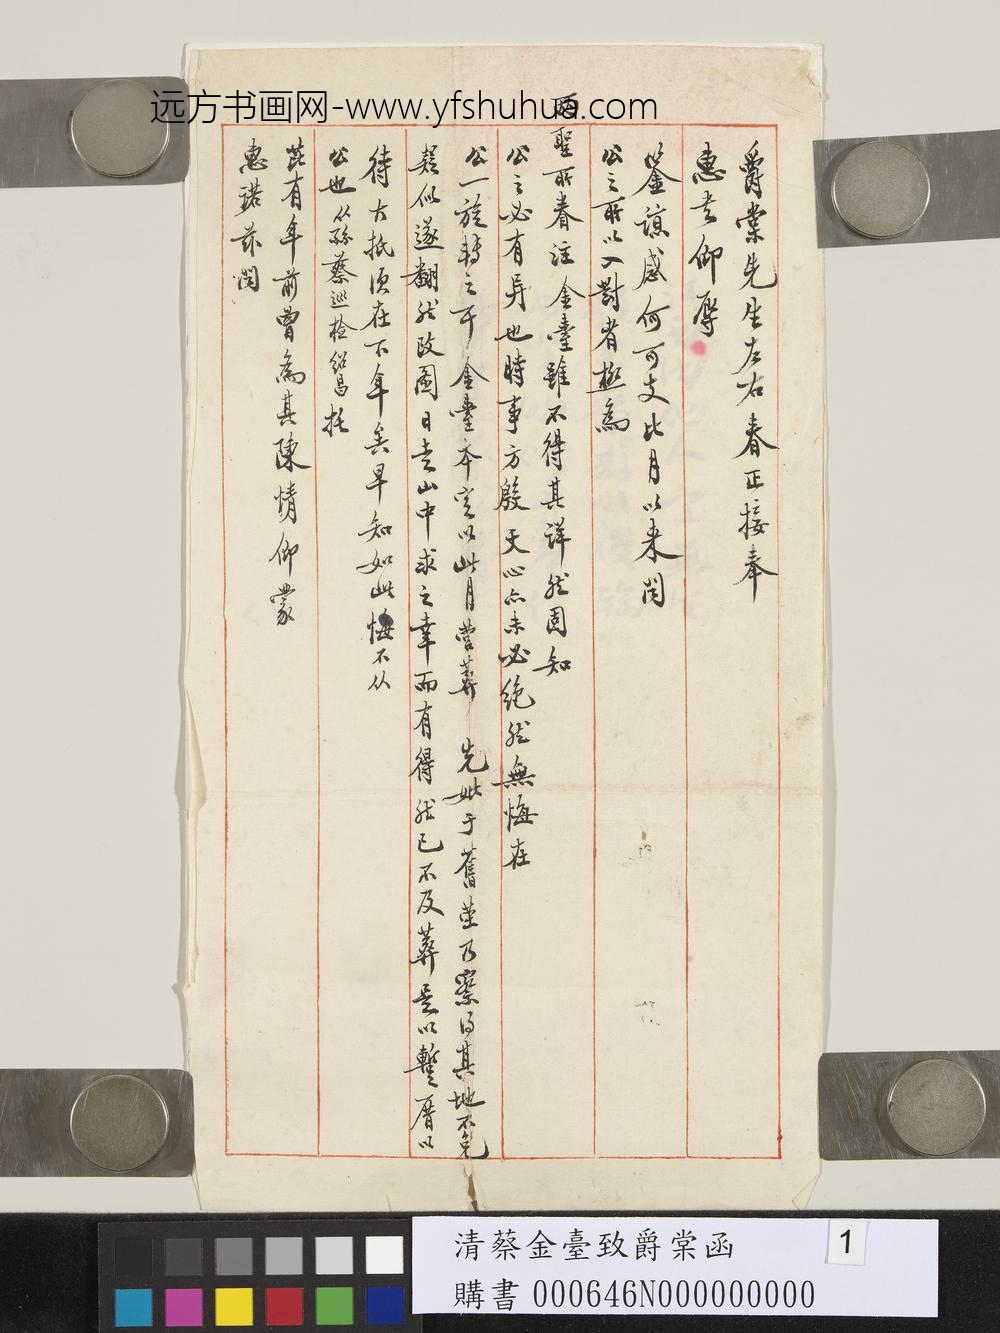 远方书画网-www.yfshuhua.com
爵棠先生左右春正接奉
惠書仰辱
鉴諒感何可支比月以来闻
公之所以入對者極為
兩聖所眷注金臺雖不得其詳然固知
公之必有异也時事方殷天心亦未必絶然無悔在
公一旋轉之干金臺本定以此月营葬 先妣于舊茔乃察得其地不免
類似遂翻然改圖日走山中求之幸而有得然已不及葬是以蹔厝以
待大抵须在下年矣早知如此悔不从
公也从孫蔡巡检绍昌托
芘有年前曾為其陳情仰蒙
惠諾兹闻
清蔡金臺致爵棠函
購書000646N000000000
1